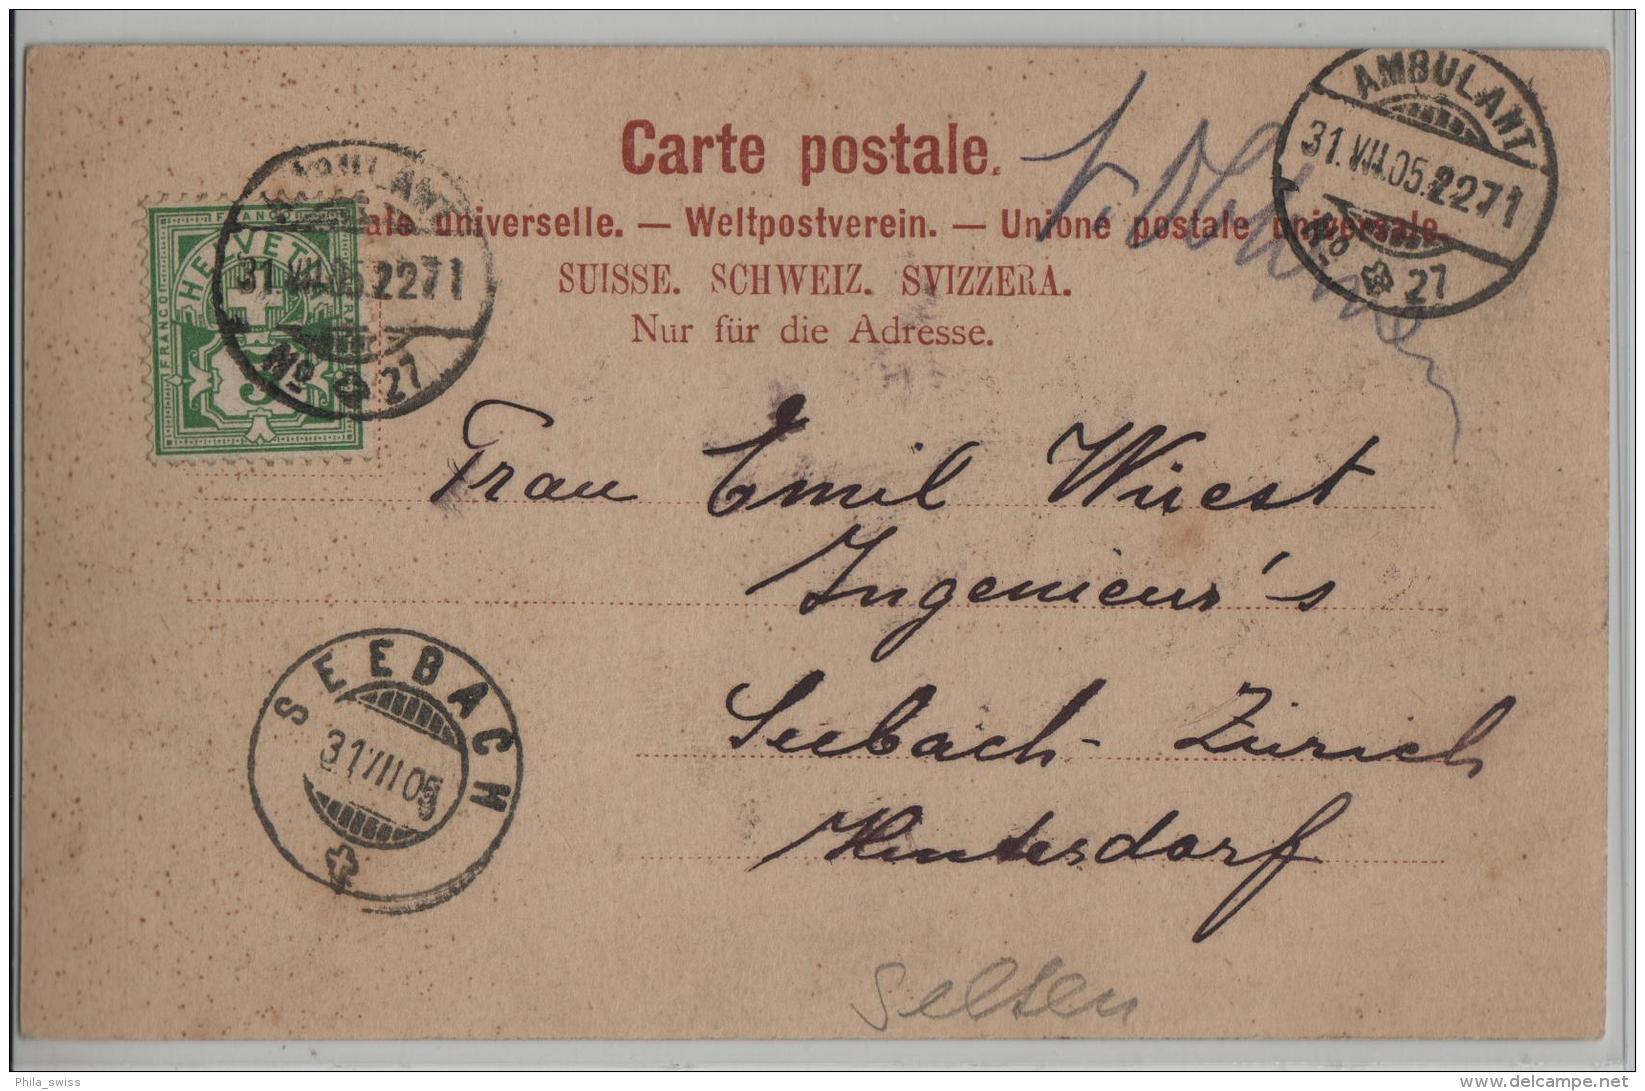 Carte postale.
ale universelle. — Weltpostverein. — Unione postale universale.
SUISSE. SCHWEIZ. SVIZZERA.
Nur für die Adresse.
AMBULANT
31.VII.05.2271
No 27
FRANCO
HELVETIA
FRANCO
5
31.VII.05.2271
No 27
Frau Emil Wüest
Ingenieur's
Seebach-Zürich
Hinterdorf
SEEBACH
31 VII 05
selten
Phila_swiss
delcampe.net